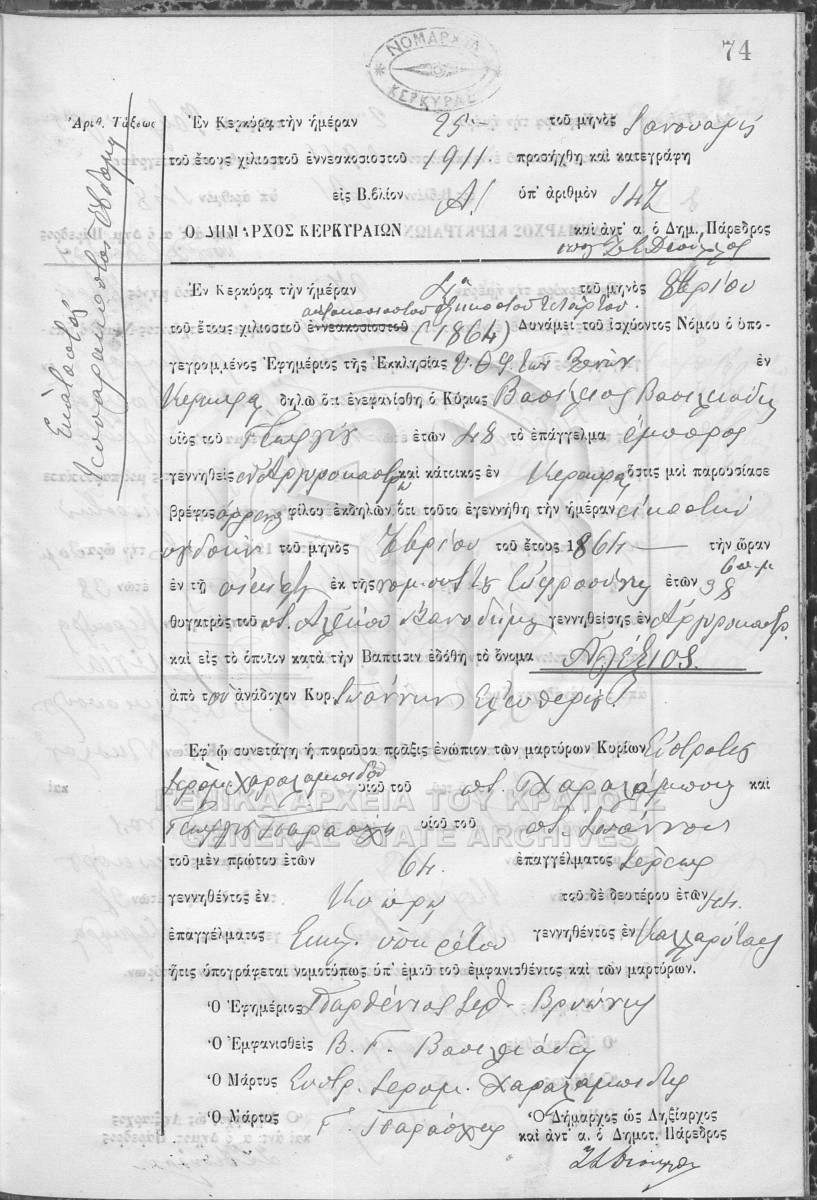 74
ΝΟΜΑΡΧΙΑ
ΚΕΡΚΥΡΑΣ
Ἀριθ. Τάξεως
Ἑκατοστὸς
τεσσαρακοστὸς ἕβδομος
Ἐν Κερκύρᾳ τὴν ἡμέραν 25 τοῦ μηνὸς Ἰανουαρίου
τοῦ ἔτους χιλιοστοῦ ἐννεακοσιοστοῦ 1911 προσήχθη καὶ κατεγράφη
εἰς Βιβλίον Α! ὑπ' ἀριθμὸν 147
Ὁ ΔΗΜΑΡΧΟΣ ΚΕΡΚΥΡΑΙΩΝ καὶ ἀντ' α. ὁ Δημ. Πάρεδρος
Ἐν Κερκύρᾳ τὴν ἡμέραν τοῦ μηνὸς 8βρίου
ὀκτακοσιοστοῦ ἑξηκοστοῦ τετάρτου
τοῦ ἔτους χιλιοστοῦ ἐννεακοσιοστοῦ (1864) Δυνάμει τοῦ ἰσχύοντος Νόμου ὁ ὑπο-
γεγραμμένος Ἐφημέριος τῆς Ἐκκλησίας Υ. Θ. τῶν Ξένων ἐν
Κερκύρᾳ δηλῶ ὅτι ἐνεφανίσθη ὁ Κύριος Βασίλειος Βασιλειάδης
υἱὸς τοῦ Γεωργίου ἐτῶν 48 τὸ ἐπάγγελμα ἔμπορος
γεννηθεὶς ἐν Ἀργυροκάστρῳ καὶ κάτοικος ἐν Κερκύρᾳ ὅστις μοὶ παρουσίασε
βρέφος ἄρρενος φίλου ἐκδηλῶν ὅτι τοῦτο ἐγεννήθη τὴν ἡμέραν εἰκοστὴν
ὀγδόην τοῦ μηνὸς 7βρίου τοῦ ἔτους 1864 τὴν ὥραν
ἐν τῇ οἰκίᾳ ἐκ τῆς νομ. συζ. Εὐφροσύνης ἐτῶν 38
θυγατρὸς τοῦ ποτ. Ἀλεξίου γεννηθείσης ἐν Ἀργυροκάστρ.
καὶ εἰς τὸ ὁποῖον κατὰ τὴν Βάπτισιν ἐδόθη τὸ ὄνομα Ἀλέξιος.
ἀπὸ τὸν ἀνάδοχον Κυρ. Ἰωάννην Ἐλευθερίου
Ἐφ' ᾧ συνετάγη ἡ παροῦσα πρᾶξις ἐνώπιον τῶν μαρτύρων Κυρίων Εὐστρατίου
Ἱερομ. Χαραλαμπίδου υἱοῦ τοῦ ποτ. Χαραλάμπους καὶ
Γεωργίου Παράσχη υἱοῦ τοῦ ποτ. Ἰωάννου
ΓΕΝΙΚΑ ΑΡΧΕΙΑ ΤΟΥ ΚΡΑΤΟΥΣ
GENERAL STATE ARCHIVES
τοῦ μὲν πρώτου ἐτῶν 64 ἐπαγγέλματος ἱερέως
γεννηθέντος ἐν τοῦ δὲ δευτέρου ἐτῶν 44
ἐπαγγέλματος Ἐκκλ. ὑπηρέτου γεννηθέντος ἐν Καλλαρύταις
ἥτις ὑπογράφεται νομοτύπως ὑπ' ἐμοῦ τοῦ ἐμφανισθέντος καὶ τῶν μαρτύρων.
Ὁ Ἐφημέριος Παρθένιος Ἱερ. Βρυώνης
Ὁ Ἐμφανισθεὶς Β. Γ. Βασιλειάδης
Ὁ Μάρτυς Εὐστρ. Ἱερομ. Χαραλαμπίδης
Ὁ Μάρτυς Γ. Παράσχης
Ὁ Δήμαρχος ὡς Ληξίαρχος
καὶ ἀντ' α. ὁ Δημοτ. Πάρεδρος